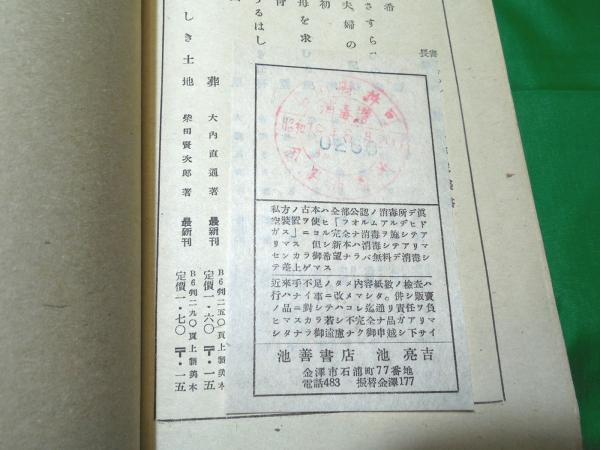 希
さすらへ
夫婦の
初
母を求む
するはし
しき土地 柴田賢次郎著 最新刊
B6判二九〇頁上製美本
定價一・七〇 〒・一五
葬 大内直通著 最新刊
B6判二五〇頁上製美本
定價一・六〇 〒・一五
0260
私方ノ古本ハ全部公認ノ消毒所デ眞
空裝置ヲ使ヒ「フオルムアルデヒド
ガス」ニヨル完全ナ消毒ヲ施シテア
リマス 但シ新本ハ消毒シテアリマ
センカラ御希望ナラバ無料デ消毒シ
テ差上ゲマス
近來手不足ノタメ内容紙數ノ檢査ハ
行ハナイ事ニ改メマシタ。併シ販賣
ノ品ニ對シテハコレ迄通リ責任ヲ負
ヒマスカラ若シ不完全ナ品ガアリマ
シタナラ御遠慮ナク御申越シ下サイ
池善書店 池亮吉
金澤市石浦町77番地
電話483 振替金澤177